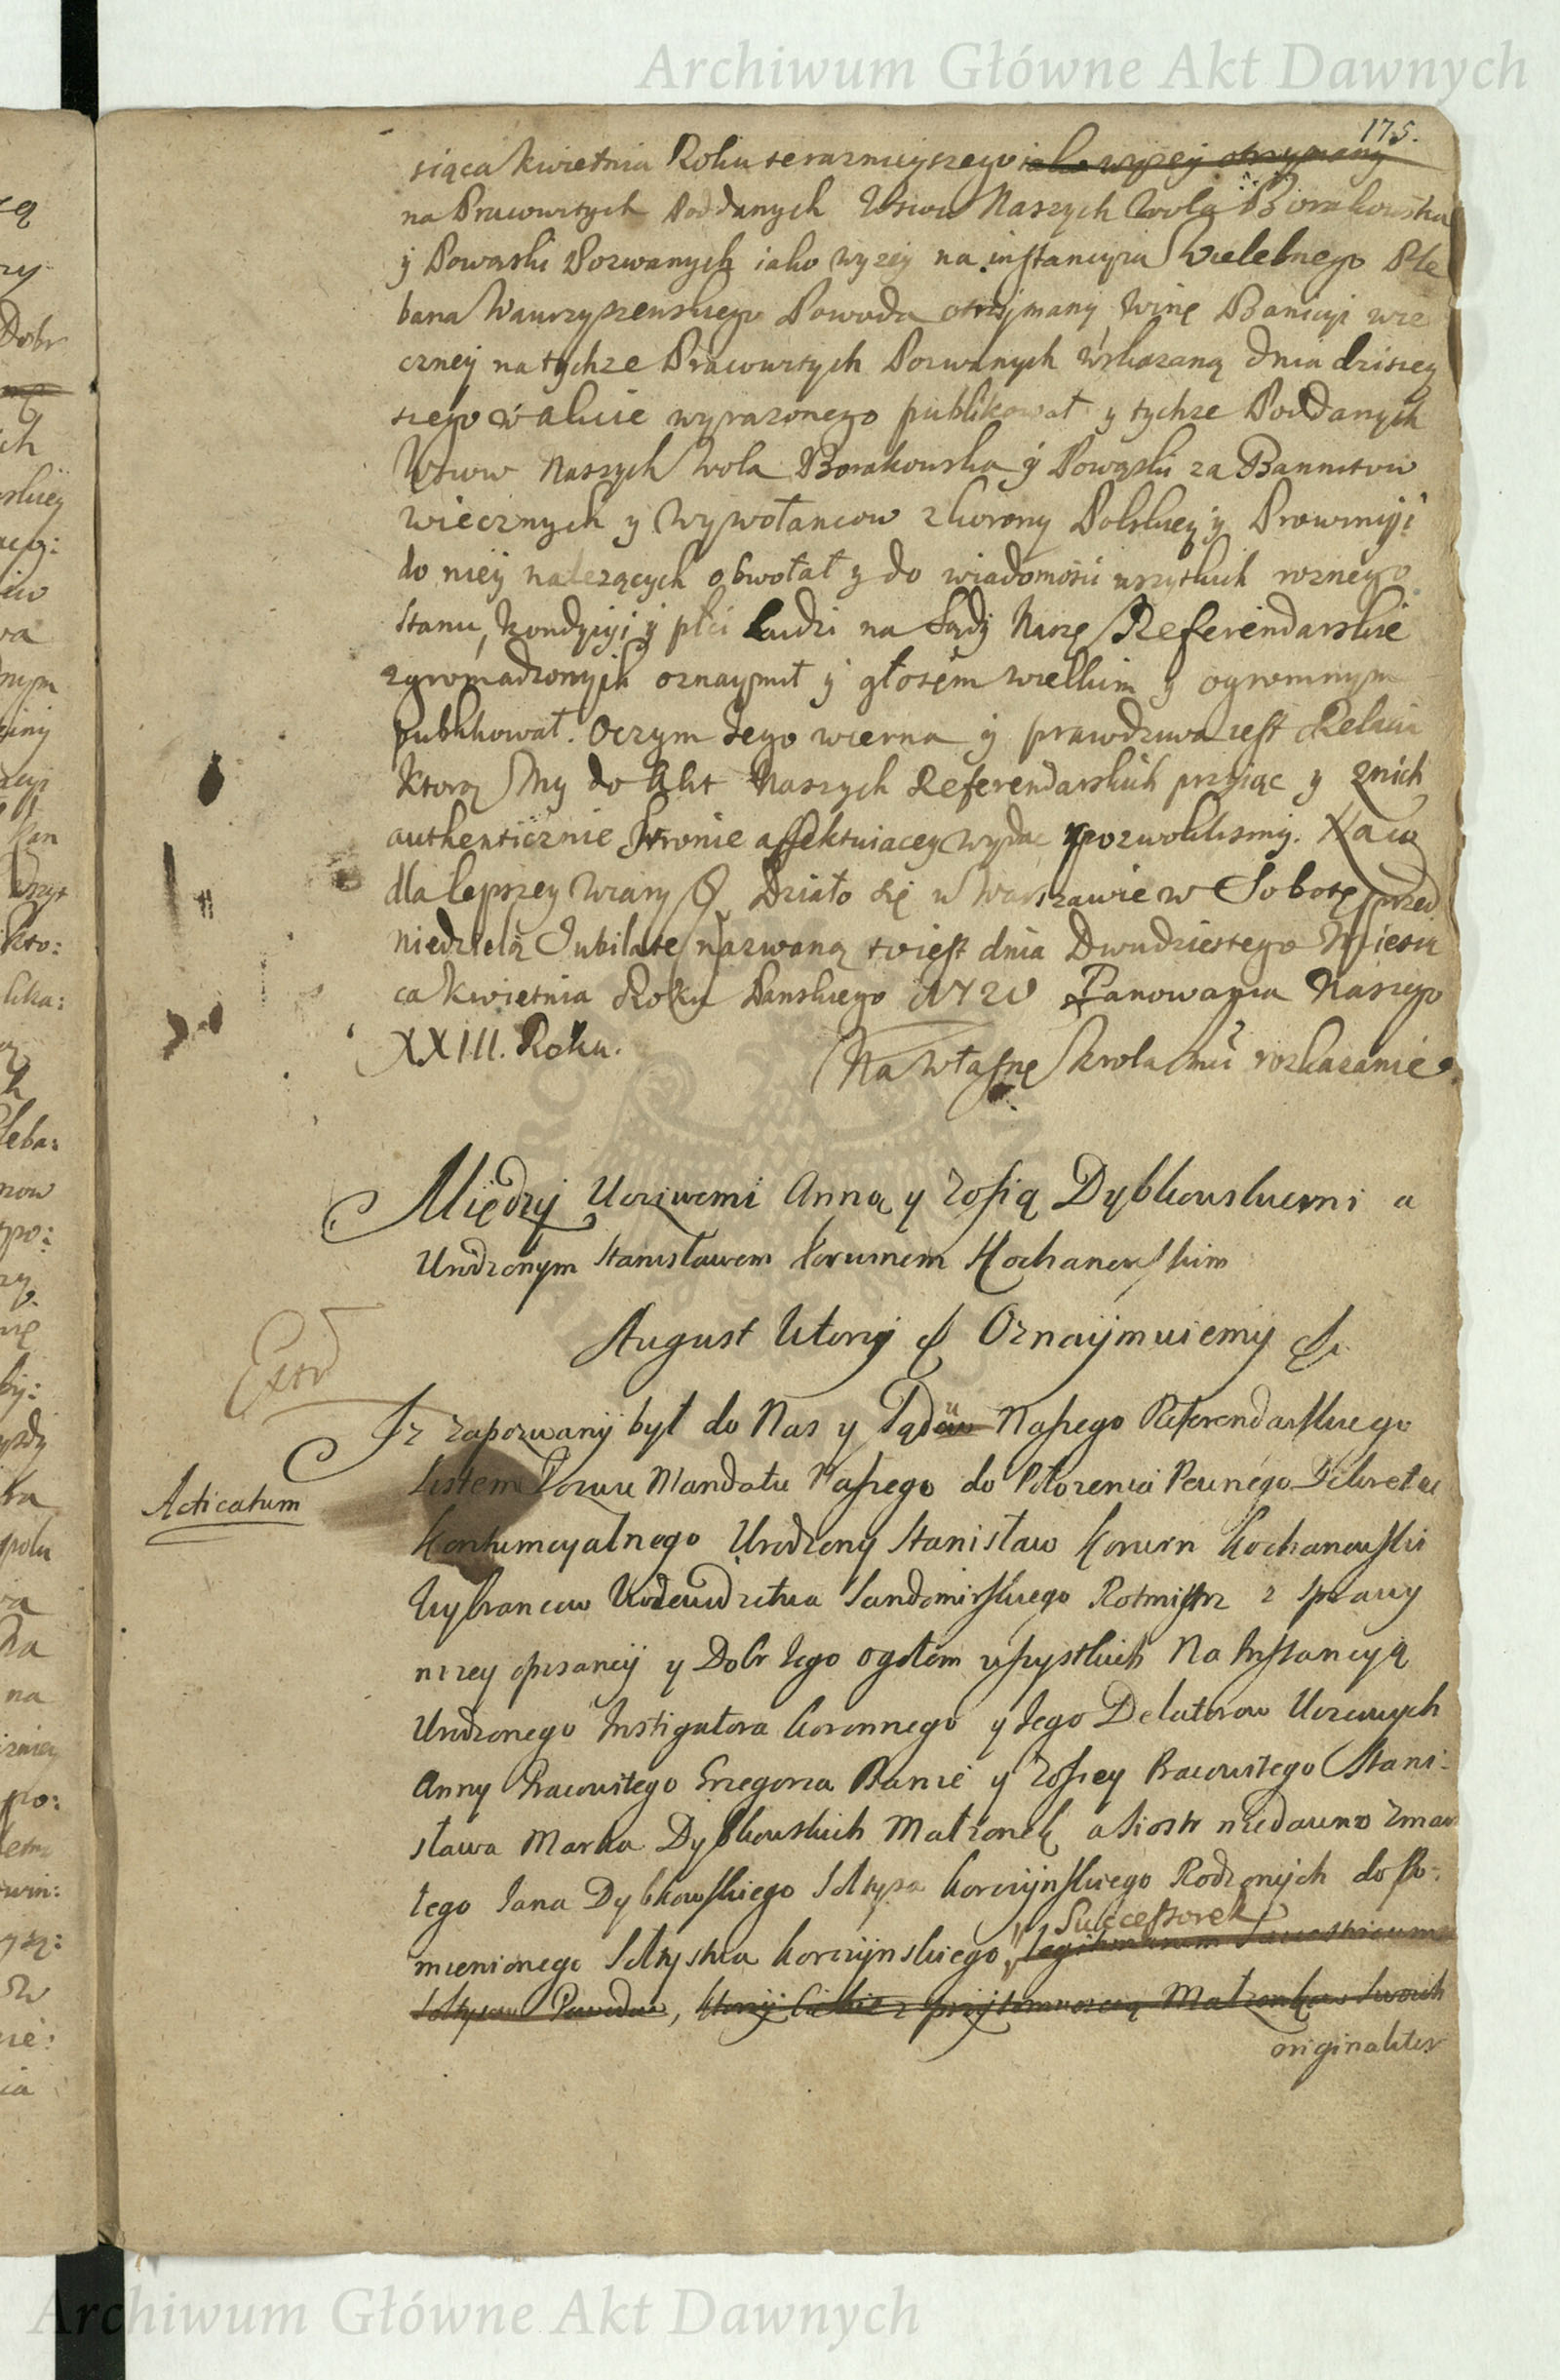 Archiwum Główne Akt Dawnych
175.
siąca kwietnia Roku terazniejszego iako wyzej otrzymany
na Pracowitych Poddanych Wsiow Naszych Wola Borakowska
ÿ Powąski Pozwanych iako wyzej na instancyią Wielebnego Ple
bana Wawrzyszewskiego Powoda otrzÿmany, winę Banicyi wie
czneÿ na tychze Pracowitych Pozwanych wskazaną dnia dzisiey
szego w akcie wyrazonego publikował y tychze Poddanych
Wsiow Naszych Wola Borakowska ÿ Powąski za Bannitow
wiecznych y Wywołancow z korony Polskiey ÿ Prowincyi
do nieÿ nalezących obwołał y do wiadomosci wszytkich roznego
stanu, kondycyi ÿ płci Ludzi na Sądÿ Nasze Referendarskie
zgromadzonych oznaymił ÿ głosem wielkim y ogromnym
publikował. Oczym Jego wierna ÿ prawdziwa iest Relacia
Ktorą My do Akt Naszych Referendarskich przyiąc y znich
authenticznie stronie affektuiacey wydac pozwolilismy. Na co
dla lepszey wiary Działo się w Warszawie w Sobotę przed
niedzielą Jubilate nazwaną to iest dnia Dwudziestego Miesia
ca kwietnia Roku Panskiego 1720 Panowania Naszego
XXIII. Roku.
Na własne krola Jmci rozkazanie
Międzÿ Uczciwemi Anną y Zofią Dybkowskiemi a
Urodzonym Stanisławem Korwinem Kochanowskim
August Wtorÿ Oznaÿmuiemÿ
Extr
Iz zapozwanÿ był do Nas y Sądu Naszego Referendarskiego
Acticatum
Listem Pozwu Mandatu Naszego do Połozenia Pewnego Dekretu
Kontumcyalnego Urodzony Stanisław Korwin Kochanowski
Wybrancow Wodewodztwa Sandomirskiego Rotmistrz z sprawy
nizey opisaneÿ y Dobr Jego ogołem wszystkich Na Instancyą
Urodzonego Instigatora Koronnego y Jego Delatorow Uczciwych
Anny Pracowitego Grzegorza Banie y Zofiey Pracowitego Stani-
sława Marka Dybkowskich Małzonek a Siostr niedawno zmar
łego Jana Dybkowskiego Sołtysa Korczÿnskiego Rodzonÿch do spo-
Successorek
mienionego Sołtystwa Korczÿnskiego, legitimarum
Sołtysow Powodow, ktorÿ Ciebie z przÿtomnoscią Małzonkow Swoich
originaliter
Archiwum Główne Akt Dawnych